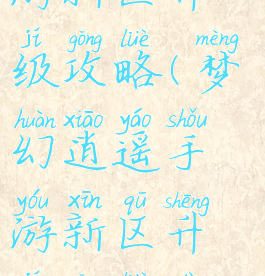 jí gōng lüè mèng
级攻略(梦
huàn xiāo yáo shǒu
幻逍遥手
yóu xīn qū shēng
游新区升